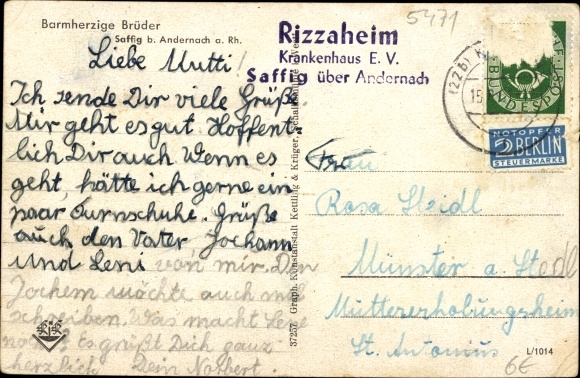 Barmherzige Brüder
Saffig b. Andernach a. Rh.
Liebe Mutti!
Ich sende Dir viele Grüße
Mir geht es gut. Hoffent-
lich Dir auch Wenn es
geht, hätte ich gerne ein
paar Turnschuhe. Grüße
auch den Vater Jochann
und Leni von mir. Der
Jochem möchte auch
schreiben. Was macht
Es grüßt Dich ganz
herzlich Dein Norbert.
37257 Graph. Kunstanstalt Kettling & Krüger,
Rizzaheim
Krankenhaus E. V.
Saffig über Andernach
5471
(22b)
15
BUNDESPOST
NOTOPFER
2 BERLIN
STEUERMARKE
Frau
Rosa Steidl
Münster a. Stedl
Müttererholungsheim
St. Antonius
L/1014
6€